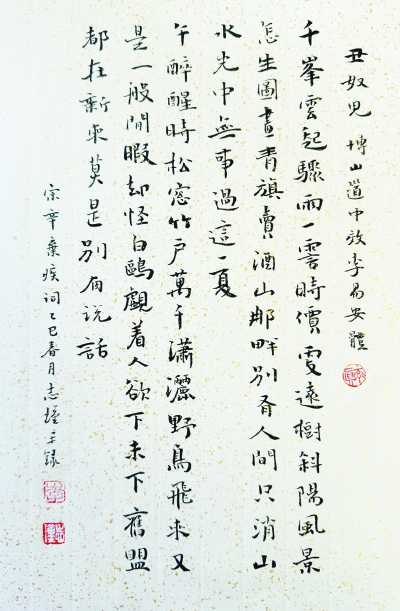 丑奴兒 博山道中效李易安體
千峯雲起驟雨一霎時價更遠樹斜陽風景
怎生圖畫青旗賣酒山那畔別有人間只消山
水光中無事過這一夏
午醉醒時松窓竹戶萬千瀟灑野鳥飛來又
是一般閒暇却怪白鷗覷着人欲下未下舊盟
都在新來莫是別有說話
宋辛棄疾詞乙巳春月志手錄